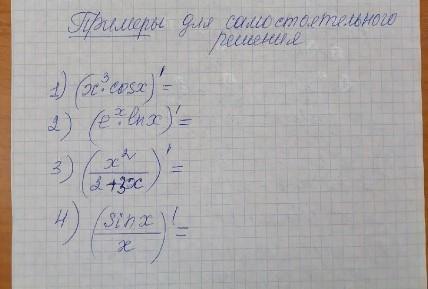 Примеры для самостоятельного
решения
1) (x³·cosx)' =
2) (eˣ·lnx)' =
3) (x²/(2+3x))' =
4) (sinx/x)' =